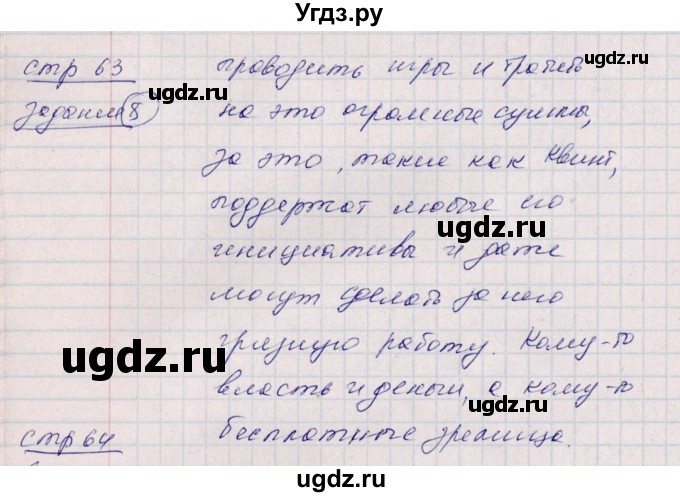 Угдз.ру
стр 63
проводить игры и тратить
задание 8
на это огромные суммы,
за это, такие как Квинт,
поддержат любые его
инициативы и даже
могут сделать за него
грязную работу. Кому-то
власть и деньги, а кому-то
стр 64
бесплатные зрелища.
ugdz.ru
ugdz.ru
ugdz.ru
ugdz.ru
ugdz.ru
ugdz.ru
ugdz.ru
ugdz.ru
Угдз.ру